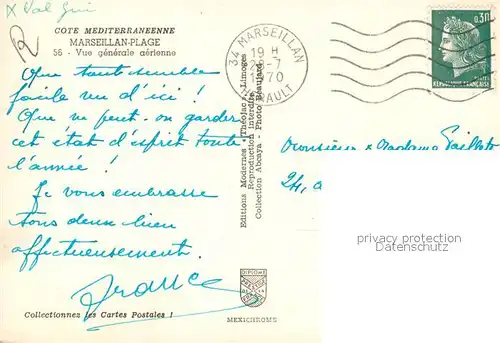 x Val Gui
R
COTE MEDITERRANEENNE
MARSEILLAN-PLAGE
56 - Vue générale aérienne
Que tout semble
facile vu d'ici !
Que ne peut-on garder
cet état d'esprit toute
l'année !
Je vous embrasse
tous deux bien
affectueusement.
France
Collectionnez les Cartes Postales !
Editions Modernes "Théojac", Limoges
Reproduction interdite
Collection Abcaya - Photo Beaujard
34 MARSEILLAN
19 H
28-7
1970
HERAULT
0,30
REPUBLIQUE FRANÇAISE
POSTES
Monsieur & Madame
24, a
privacy protection
Datenschutz
DIPLOME
PRESTIGE
MEXICHROME